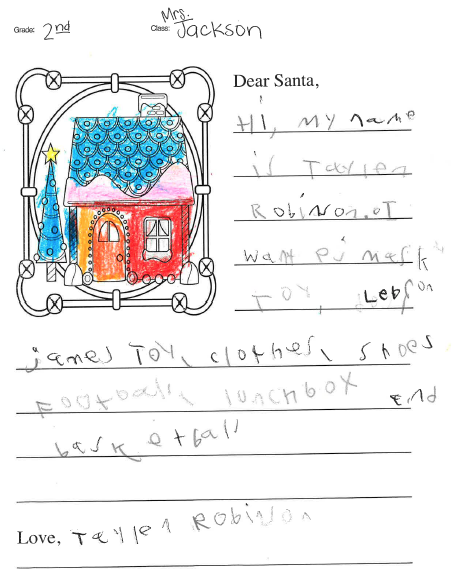 Grade: 2nd
Class: Mrs. Jackson
Dear Santa,
Hi, my name
is Taylen
Robinson. I
want
Toy, Lebron
james Toy, clothes, shoes
Football, lunchbox end
basketball
Love, Taylen Robinson